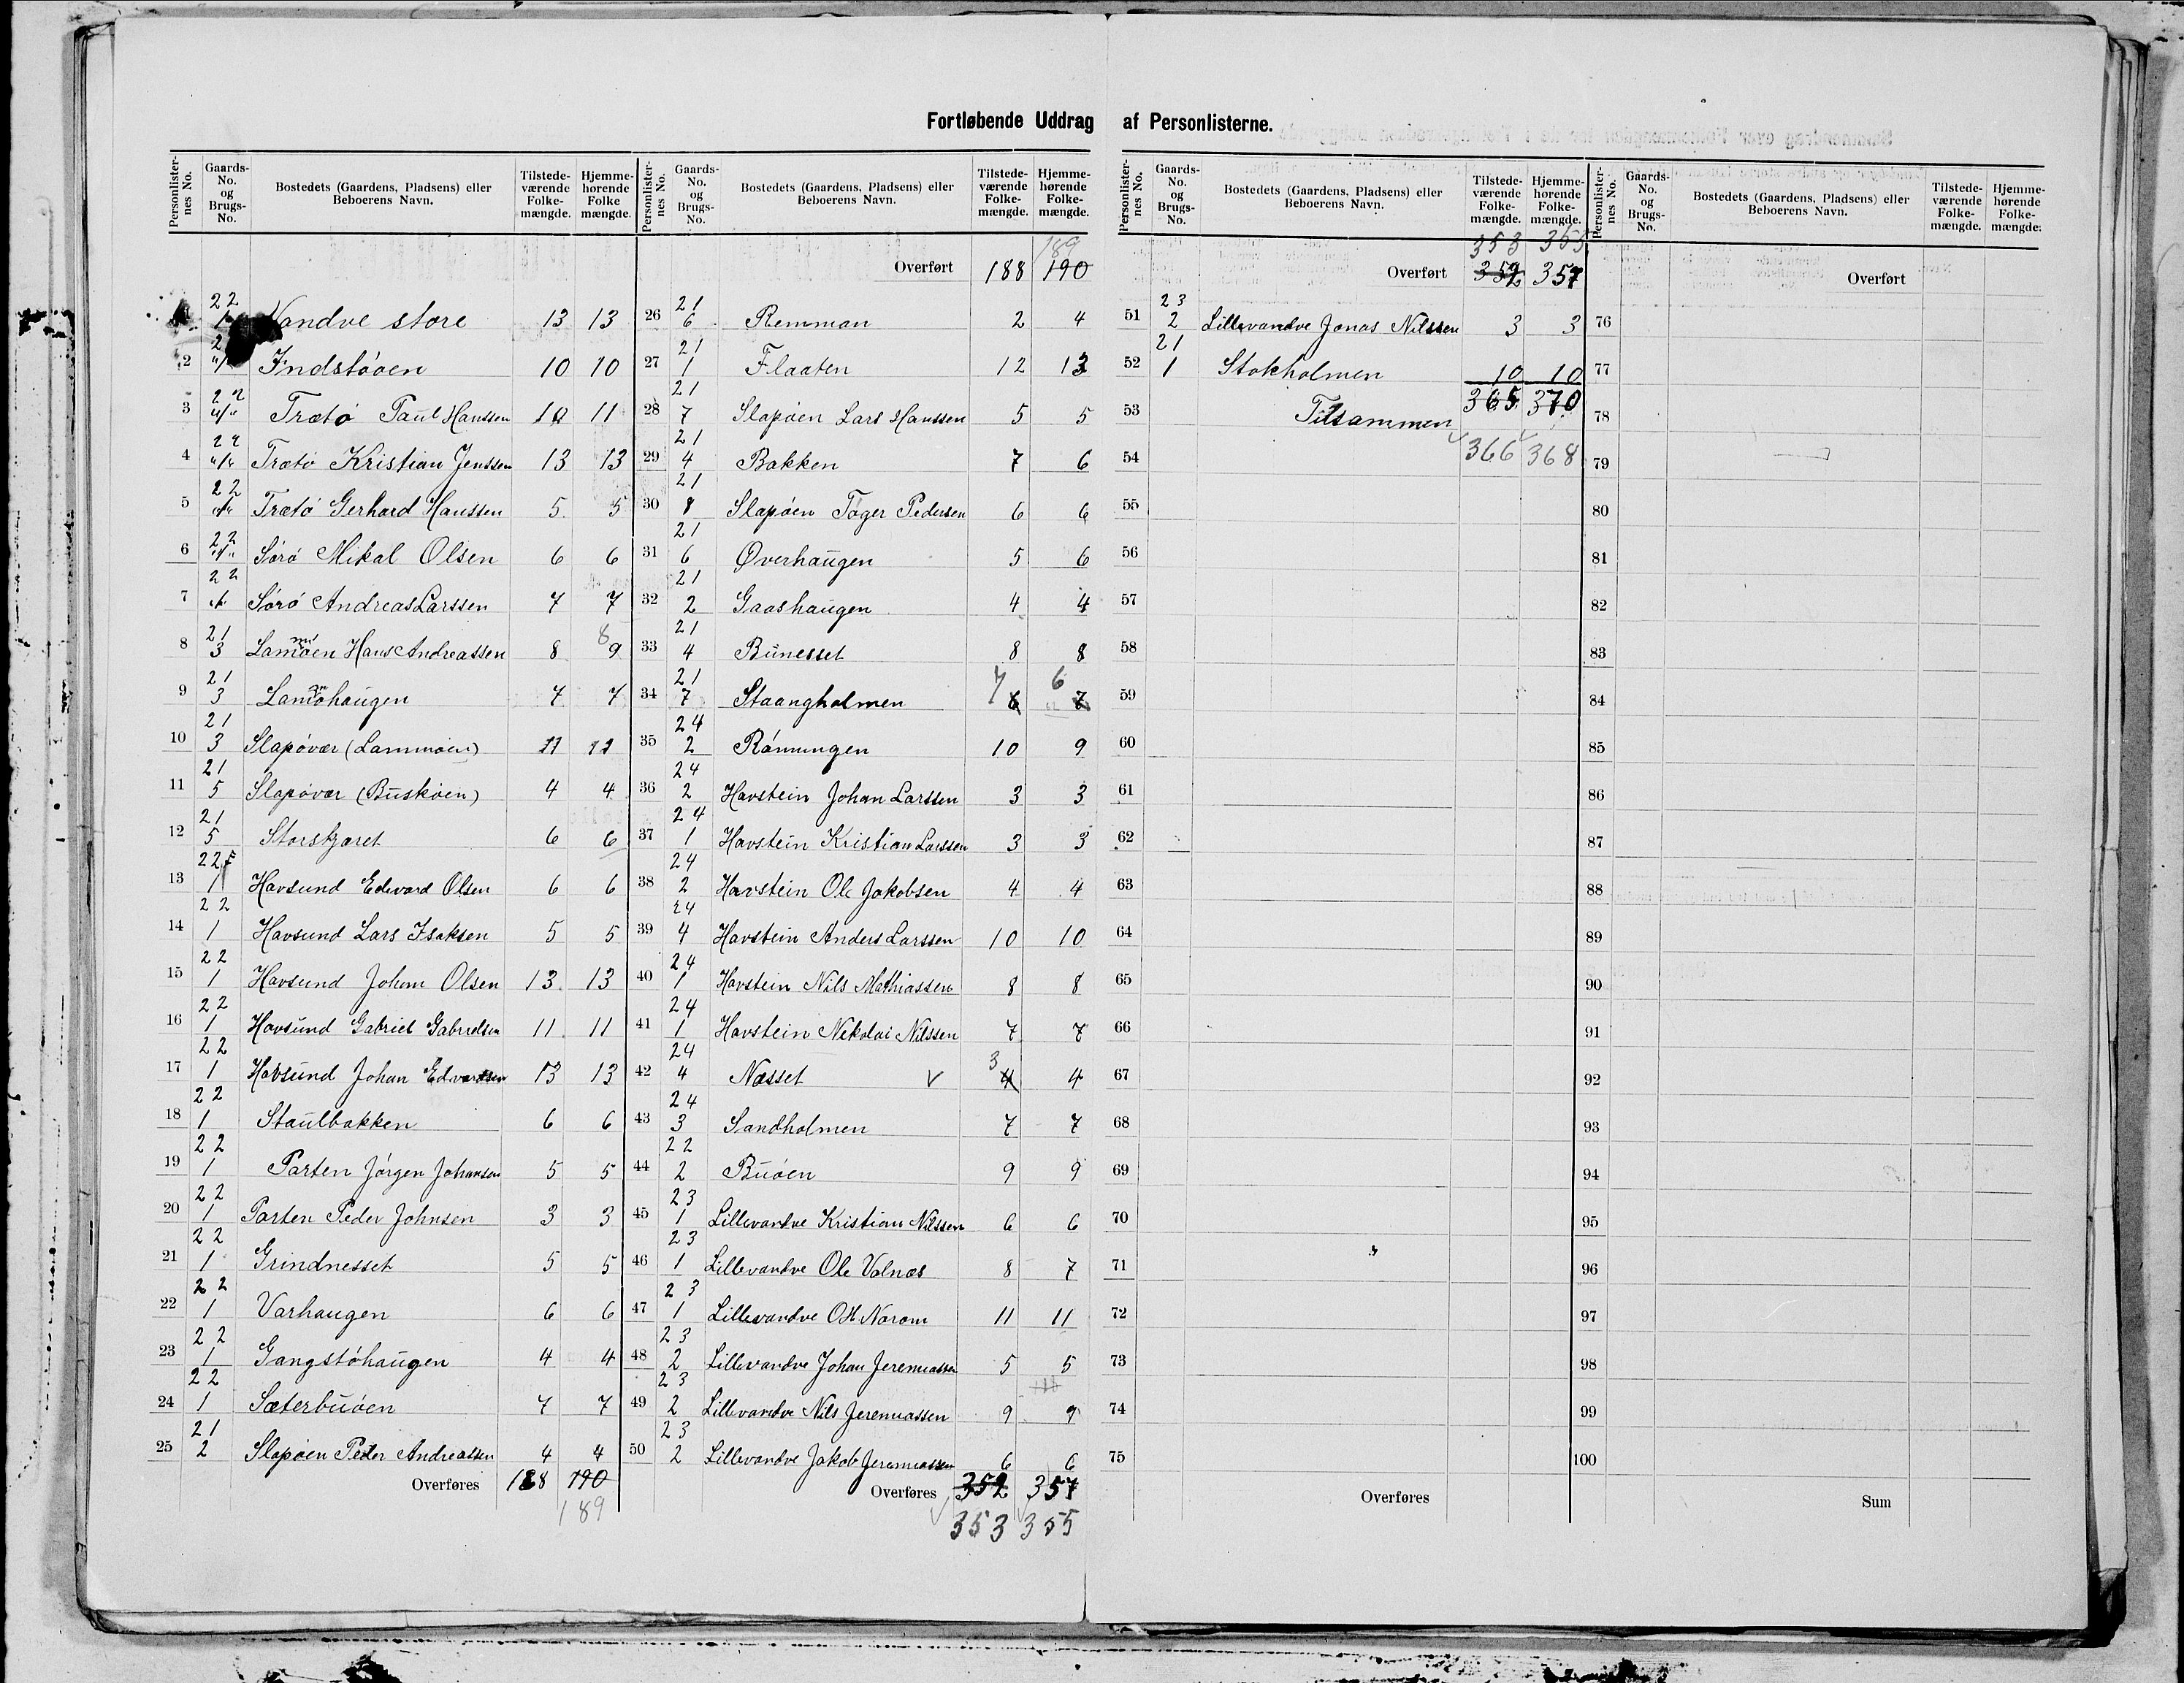 Fortløbende Uddrag af Personlisterne.
Personlister-nes No. Gaards-No. og Brugs-No. Bostedets (Gaardens, Pladsens) eller Beboerens Navn. Tilstede-værende Folke-mængde. Hjemme-hørende Folke mængde.
1 22 1 Vandve store 13 13
2 "/" Indstøoen 10 10
3 22 "/" Trætø Paul Hanssen 10 11
4 22 "/" Trætø Kristian Jenssen 13 13
5 22 "/" Trætø Gerhard Hanssen 5 5
6 22 "/" Sørø Mikal Olsen 6 6
7 22 Sørø Andreas Larssen 7 7
8 21 3 Lamøen Hans Andreassen 8 9 8
9 21 3 Lamøhaugen 7 7
10 21 3 Slapøvær (Lammøen) 11 11
11 21 5 Slapøvær (Buskøen) 4 4
12 21 5 Storskjæret 6 6
13 22 1 Havsund Edvard Olsen 6 6
14 22 1 Havsund Lars Isaksen 5 5
15 22 1 Havsund Johan Olsen 13 13
16 22 1 Havsund Gabriel Gabrielsen 11 11
17 22 1 Havsund Johan Edvardsen 13 13
18 22 1 Staulbakken 6 6
19 22 1 Parten Jørgen Johansen 5 5
20 22 1 Parten Peder Johnsen 3 3
21 22 1 Grindnesset 5 5
22 22 1 Varhaugen 6 6
23 22 1 Gangstøhaugen 4 4
24 22 1 Sæterbuøen 7 7
25 21 2 Slapøen Peder Andreassen 4 4
Overføres 188 190
189
Personlister-nes No. Gaards-No. og Brugs-No. Bostedets (Gaardens, Pladsens) eller Beboerens Navn. Tilstede-værende Folke-mængde. Hjemme-hørende Folke-mængde.
189
Overført 188 190
26 21 6 Remman 2 4
27 21 1 Flaaten 12 13
28 21 7 Slapøen Lars Hanssen 5 5
29 21 4 Bakken 7 6
30 21 8 Slapøen Tøger Pedersen 6 6
31 21 6 Øverhaugen 5 6
32 21 2 Gaashaugen 4 4
33 21 4 Bunesset 8 8
34 21 7 Staangholmen 7 6 6 7
35 24 2 Rømmingen 10 9
36 24 2 Havstein Johan Larssen 3 3
37 24 1 Havstein Kristian Larssen 3 3
38 24 2 Havstein Ole Jakobsen 4 4
39 24 4 Havstein Anders Larssen 10 10
40 24 1 Havstein Nils Mathiassen 8 8
41 24 1 Havstein Nikolai Nilssen 7 7
42 24 4 Næsset 3 4 4
43 24 3 Sandholmen 7 7
44 22 2 Buøen 9 9
45 23 1 Lillevandve Kristian Nilssen 6 6
46 23 1 Lillevandve Ole Valnæs 8 7
47 23 1 Lillevandve Ott Norom 11 11
48 23 2 Lillevandve Johan Jeremiassen 5 5
49 23 2 Lillevandve Nils Jeremiassen 9 9
50 23 2 Lillevandve Jakob Jeremiassen 6 6
Overføres 352 357
353 355
Personlister-nes No. Gaards-No. og Brugs-No. Bostedets (Gaardens, Pladsens) eller Beboerens Navn. Tilstede-værende Folke-mængde. Hjemme-hørende Folke-mængde.
353 355
Overført 352 357
51 23 2 Lillevandve Jonas Nilssen 3 3
52 21 1 Stokholmen 10 10
53 Tilsammen 365 370
54 366 368
55
56
57
58
59
60
61
62
63
64
65
66
67
68
69
70
71
72
73
74
75
Overføres
Personlister-nes No. Gaards-No. og Brugs-No. Bostedets (Gaardens, Pladsens) eller Beboerens Navn. Tilstede-værende Folke-mængde. Hjemme-hørende Folke-mængde.
Overført
76
77
78
79
80
81
82
83
84
85
86
87
88
89
90
91
92
93
94
95
96
97
98
99
100
Sum